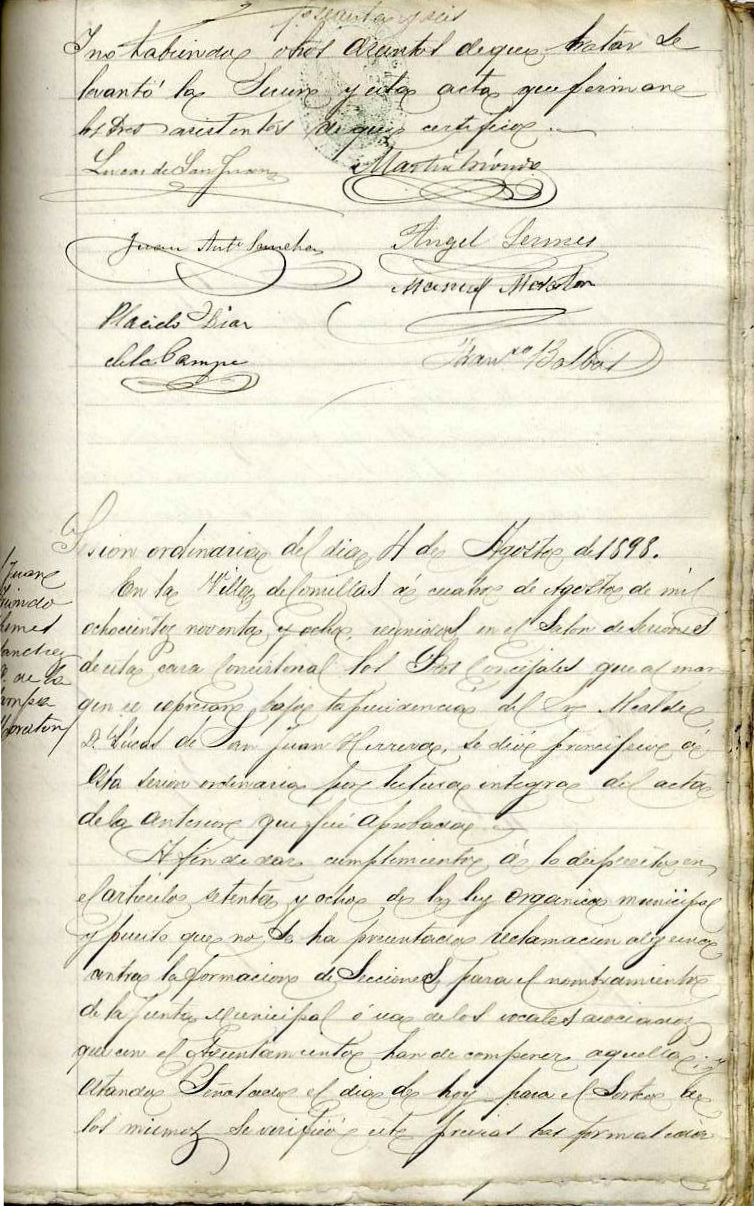 y no habiendo otros asuntos de que tratar se
levantó la Sesion y esta acta que firman
los Sres asistentes de que certifico.
Lucas de San Juan
Martin
Juan Anto Sanchez
Angel
Manuel
Placido Diaz
de la Campa
Balbas
Sesion ordinaria del dia 4 de Agosto de 1898.
En la Villa de Comillas á cuatro de Agosto de mil
ochocientos noventa y ocho, reunidos en el Salon de sesiones
de esta casa Consistorial los Sres Concejales que al mar
gen se espresan bajo la presidencia del Sr Alcalde
D. Lucas de San Juan Herrera, se dió principio á
esta sesion ordinaria por lectura integra del acta
de la anterior que fué aprobada.
Afin de dar cumplimiento á lo dispuesto en
el articulo setenta y ocho de la ley organica municipal
y puesto que no se ha presentado reclamacion alguna
contra la formacion de Secciones para el nombramiento
de la Junta Municipal ó sea de los vocales asociados
que con el Ayuntamiento han de componer aquella; y
estando Señalado el dia de hoy para el Sorteo de
los mismos se verificó este previas las formalidades
Juan
Sanchez
D. de la
Campa